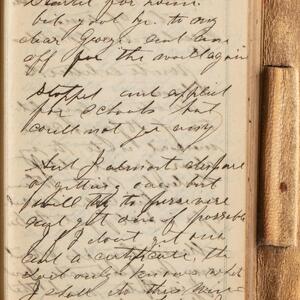 Started for home
but good by to my
dear George and am
off for the world again
Stopped and applied
for schools but
could not get any
But I almost despair
of getting one but
will try to persevere
and get one if possible
If I don't get one
and a certificate, the
only knows what
I shall do this